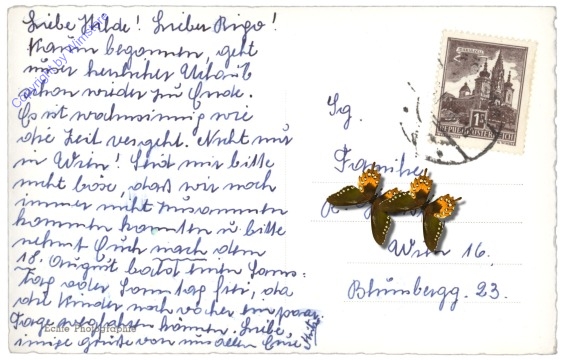 Liebe Hilde! Lieber Rigo!
Kaum begonnen, geht
unser herrlicher Urlaub
schon wieder zu Ende.
Es ist wahnsinnig wie
die Zeit vergeht. Nicht nur
in Wien! Seid mir bitte
nicht böse, daß wir noch
immer nicht zusammen
kommen konnten u. bitte
nehmt Euch nach dem
18. August bald einen Sams-
tag oder Sonntag frei, da
die Kinder noch vorher ein paar
Tage wegfahren können. Liebe,
innige Grüße von uns allen Eure
Echte Photographie
Copyright by
MARIAZELL
1S
REPUBLIK ÖSTERREICH
Fam
Wien 16.
Blumbergg. 23.